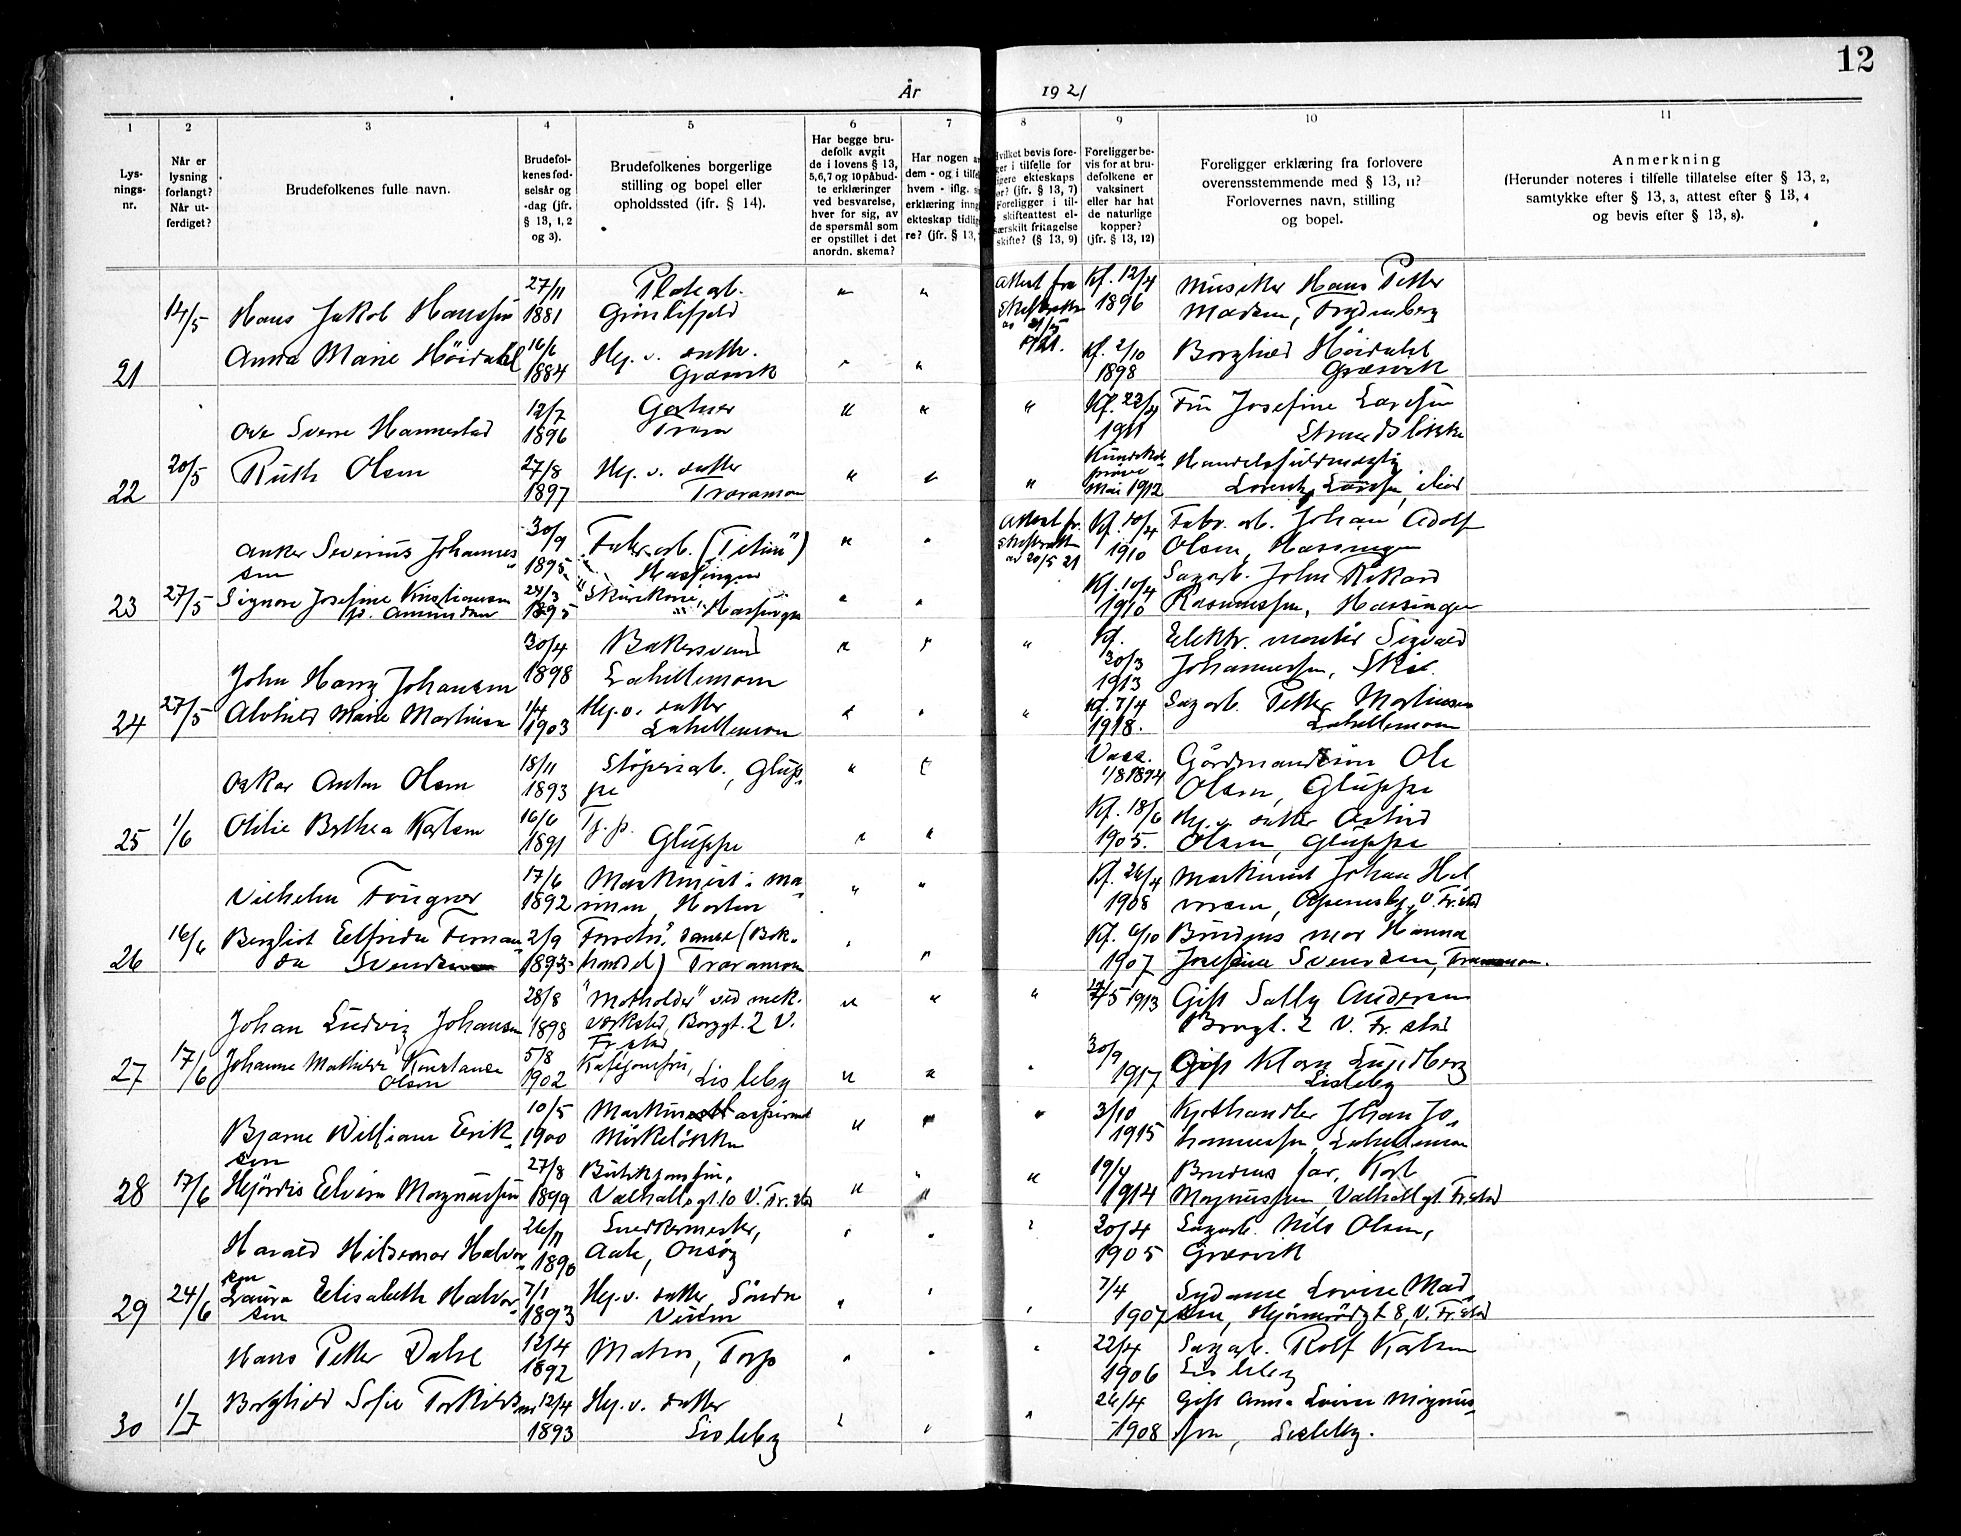 12
År 1921
1 2 3 4 5 6 7 8 9 10 11
Lys-
nings-
nr.
Når er
lysning
forlangt?
Når ut-
ferdiget?
Brudefolkenes fulle navn.
Brudefol-
kenes fød-
selsår og
-dag (jfr.
§ 13, 1, 2
og 3).
Brudefolkenes borgerlige
stilling og bopel eller
opholdssted (jfr. § 14).
Har begge bru-
defolk avgit
de i lovens § 13,
5,6,7 og 10 påbud-
te erklæringer
ved besvarelse,
hver for sig, av
de spørsmål som
er opstillet i det
anordn. skema?
Har nogen a
dem - og i tilfe
hvem - iflg.
erklæring inng
ekteskap tidlig
re? (jfr. § 13,
vilket bevis fore-
ger i tilfelle for
igere ekteskaps
ør? (jfr. § 13, 7)
Foreligger i til-
skifteattest el-
særskilt fritagelse
skifte? (§ 13, 9)
Foreligger be-
vis for at bru-
defolkene er
vaksinert
eller har hat
de naturlige
kopper?
(jfr. § 13, 12)
Foreligger erklæring fra forlovere
overensstemmende med § 13, 11?
Forlovernes navn, stilling
og bopel.
Anmerkning
(Herunder noteres i tilfelle tillatelse efter § 13, 2,
samtykke efter § 13, 3, attest efter § 13, 4
og bevis efter § 13, 8).
21 14/5 Hans Jakob Hanssen 27/11 1881 Platearb. " " Attest fra Kf. 12/4 1896 Musiker Hans Petter
Madsen,
Anna Marie Høidahl 16/6 1884 Hj. v. datth. Græsvik " " Kf. 2/10 1898 Borghild Høidahl
Græsvik
22 20/5 Ove Sverre Hannestad 12/7 1896 Gartner " " " Kf. 23/4 1911 Fru Josefine Larssen
Ruth Olsen 27/8 1897 Hj. v. datter Traramoen " " " Kundskabs
prøve
Mai 1912 Handelsfuldmægtig
Lorentz Larssen,
23 27/5 Anker Severius Johannes-
sen 30/9 1895 Fabr. arb. ("Titan") Hassingen " " Attest fr.
skifteretten
av 20/5 21 Kf. 10/4 1910 Fabr. arb. Johan Adolf
Olsen, Hassingen
Signora Josefine Kristiansen
24/3 1895 Hassingen " " Kf. 10/4 1910 Sagarb. John Rikard
Rasmussen, Hassingen
24 27/5 John Harry Johansen 30/4 1898 Bakersvend Lahellemoen " " " Kf.
30/3
1913 Elektr. montør Sigvald
Johannessen,
Alvhild Marie Martinsen 1/4 1903 Hj. v. datter Lahellemoen " " " Kf. 7/4 1918. Sagarb. Petter Martinsen
Lahellemoen
25 1/6 Oskar Anton Olsen 18/11 1893 Støperiarb., Glup-
pe " " Vacc.
1/8 1894 Ole
Olsen, Gluppe
Otilie Bertha Karlsen 16/6 1891 Tj. p. Gluppe " " Kf. 18/6 1905. Hj. v. datter Astrid
Olsen, Gluppe
26 16/6 Vilhelm Fougner 17/6 1892 Maskinist i ma-
rinen, Horten " " Kf. 26/4 1908 Maskinist Johan Hal
vorsen, V. Fr.stad
Bergliot Elfrida Fernan-
da Svendsen 2/9 1893 (Bok-
handel) Traramoen " " Kf. 6/10 1907 Brudens mor Hanna
Josefine Svendsen,
27 17/6 Johan Ludvig Johansen 28/8 1898 "Motholder" ved mek.
verksted, Borggt. 2 V.
Fr.stad " " " 1913 Gift Sally Andersen
Borggt. 2 V. Fr.stad
Johanne Mathilde Konstanse
Olsen 5/8 1902 Lisleby " " " 30/9 1917 Gift Klara Lundberg
Lisleby
28 17/6 Bjarne William Erik-
sen 10/5 1900 Maskinistaspirant " " " 3/10 1915 Kjøthandler Johan Jo-
hannessen, Lahellemoen
Hjørdis Elvira Magnussen 27/8 1899 Butikjomfru,
Valhallgt. 10 V. Fr.stad " " " 19/4 1914 Brudens far, Karl
Magnussen, Valhallgt. Fr.stad
29 24/6 Harald Hildemar Halvor-
sen 26/11 1890 Snedkermester,
Aale, Onsøy " " " 30/4 1905 Sagarb. Nils Olsen,
Græsvik
Laura Elisabeth Halvor-
sen 7/1 1893 Hj. v. datter, Søndre " " " 7/4 1907 Lovise Mad-
sen, 8, V. Fr.stad
30 1/7 Hans Petter Dahl 12/4 1892 Matros, Torp " " " 22/4 1906 Sagarb. Rolf Karlsen
Lisleby
Borghild Sofie Torkildsen 12/4 1893 Hj. v. datter
Lisleby " " " 26/4 1908 Gift Anna Lovise Magnus-
sen, Lisleby.